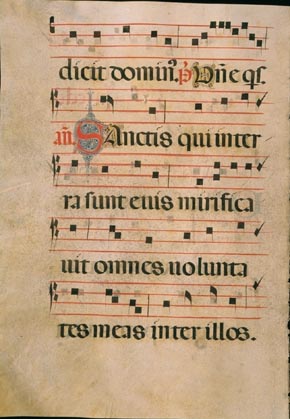 dicit domin᷒. p̄ Dñe qͥs.
añ. Sanctis qui inter
ra sunt euis mirifica
uit omnes uolunta
tes meas inter illos.